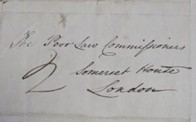 The Poor Law Commissioners
2
Somerset House
London